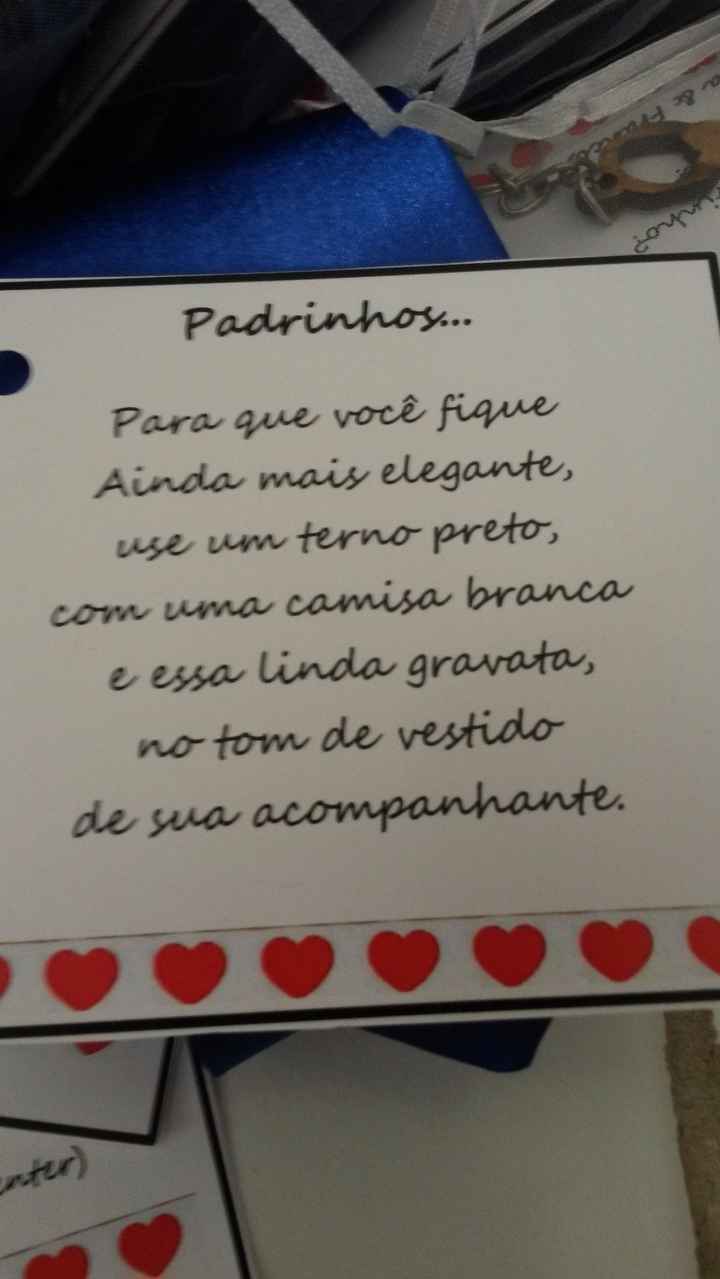 a & Franc
inho?
Padrinhos...
Para que você fique
Ainda mais elegante,
use um terno preto,
com uma camisa branca
e essa linda gravata,
no tom de vestido
de sua acompanhante.
enter)